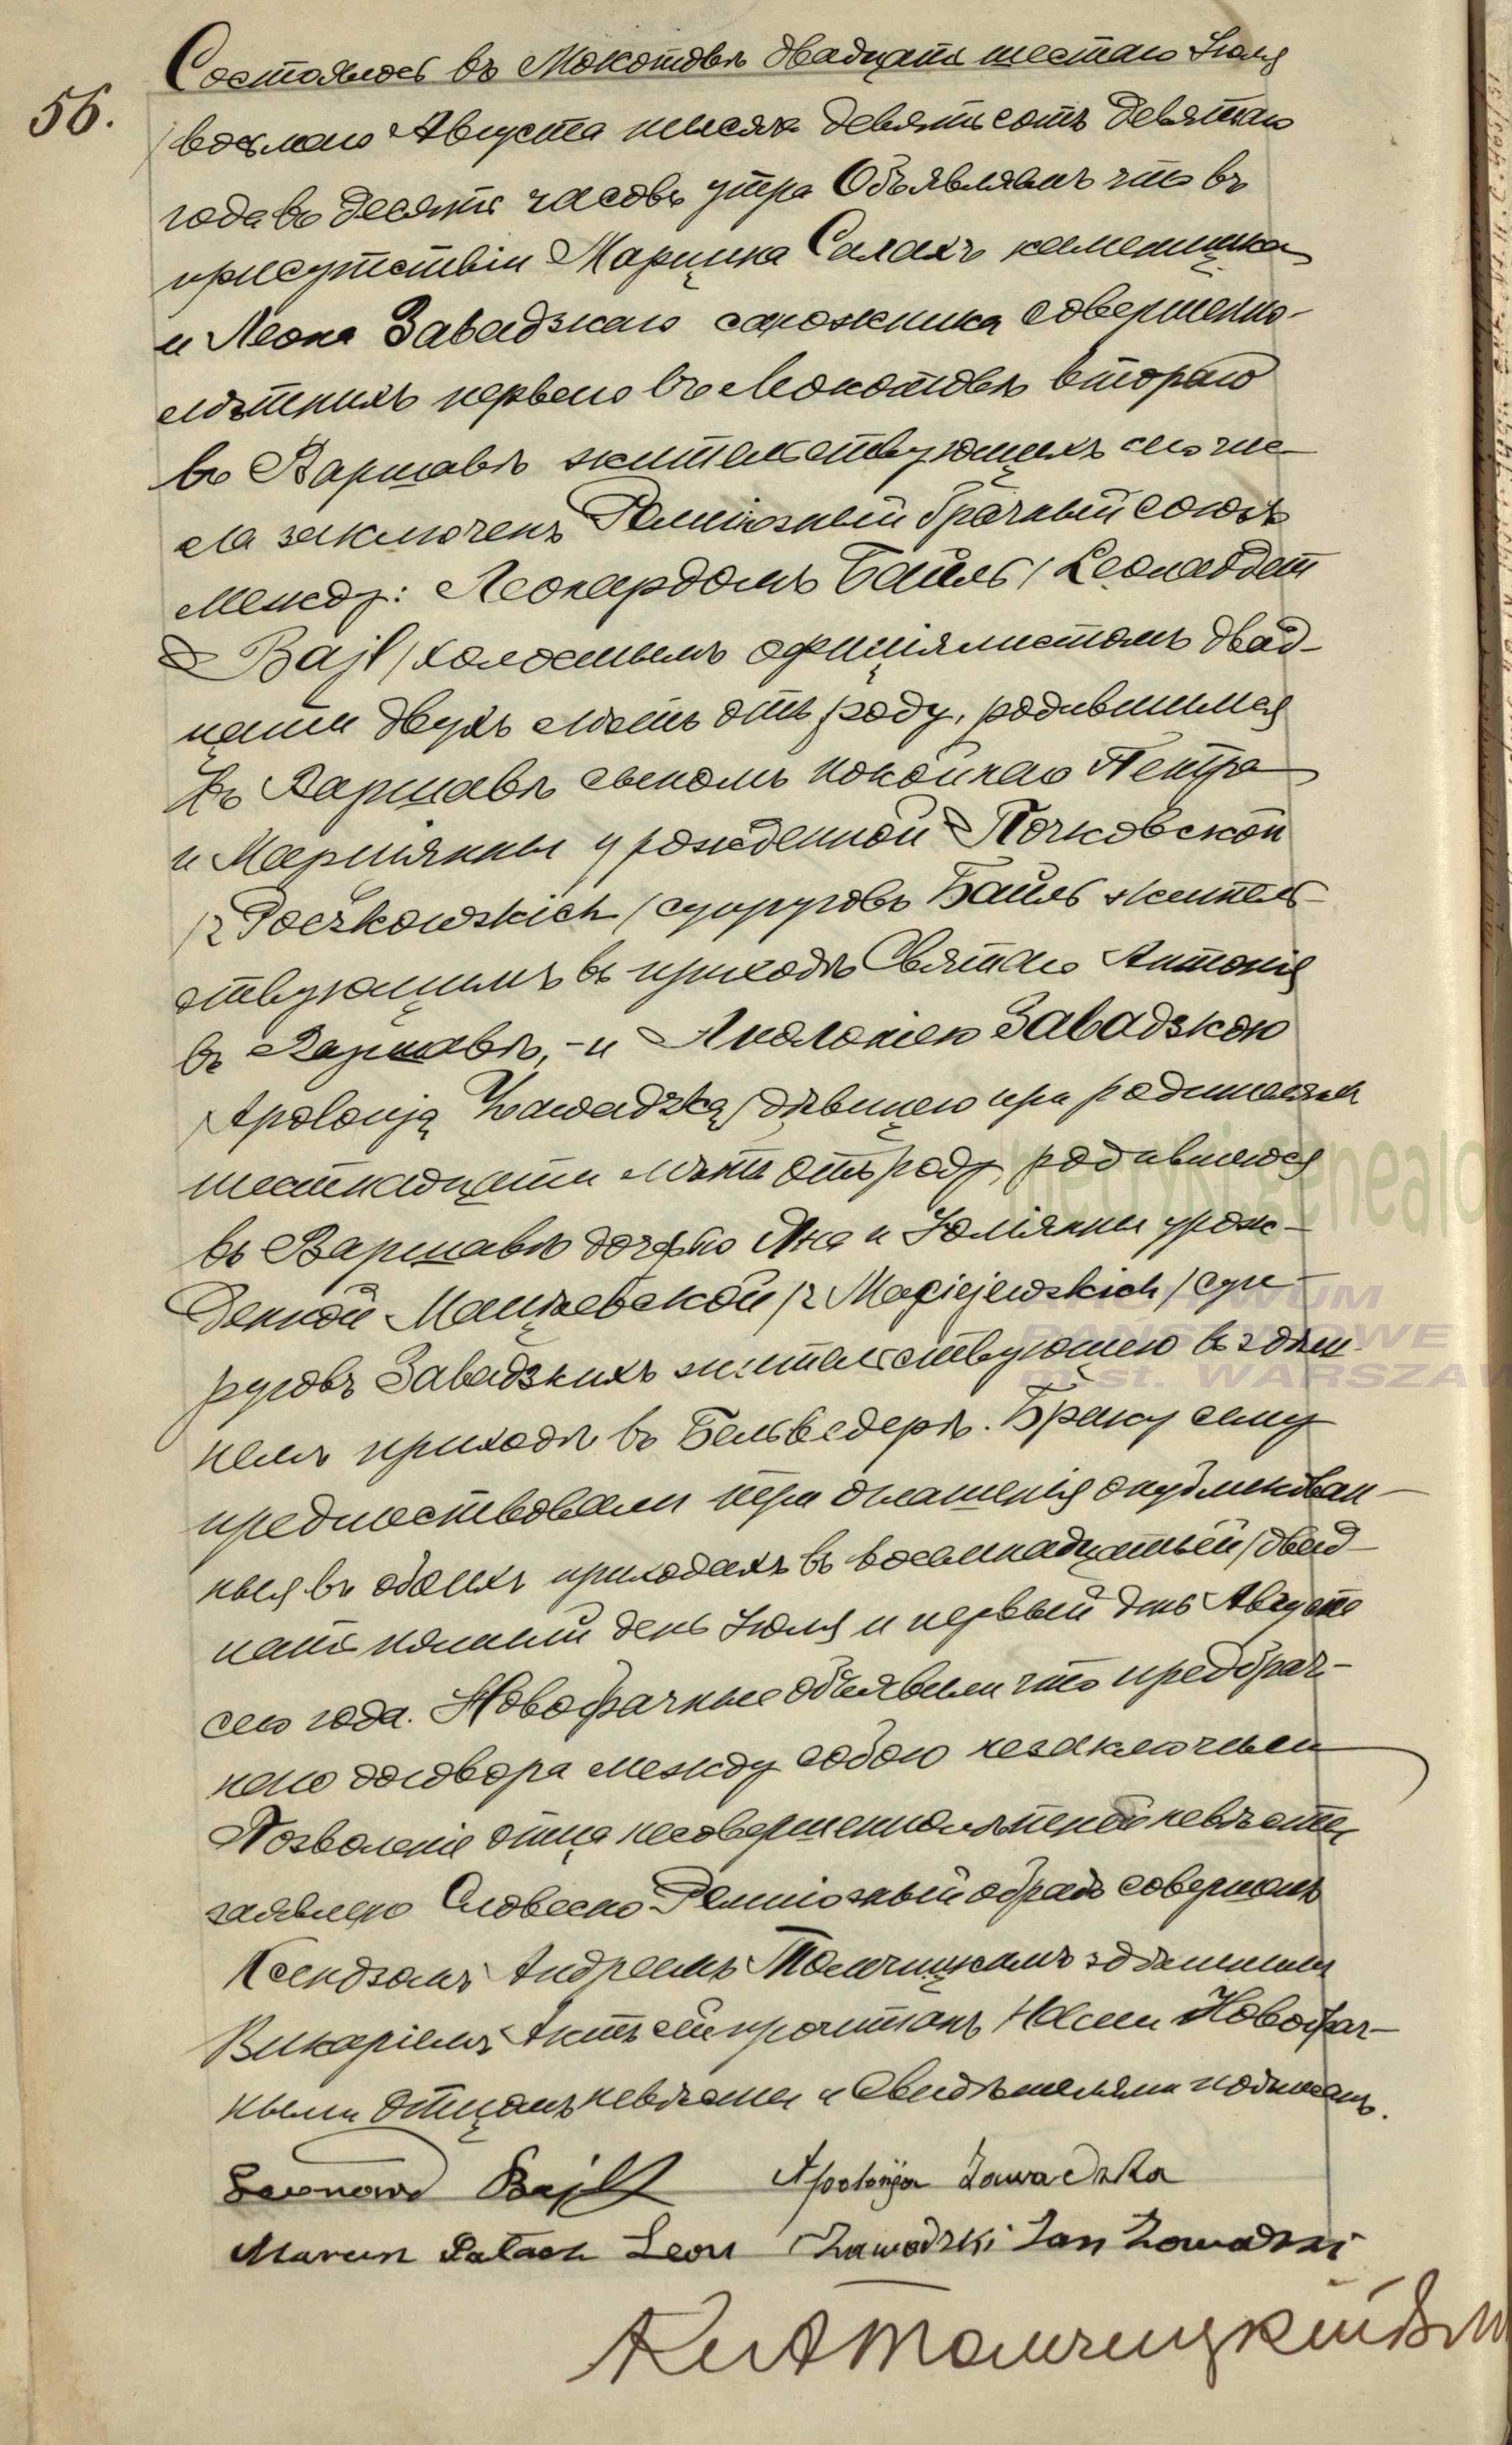 56.
Состоялось въ Мокотовѣ двадцать шестаго Іюля
/восьмаго Августа тысяча девятьсотъ девятаго
года въ десять часовъ утра Объявляемъ что въ
присутствіи Марцина Салахъ каменщика
и Леона Завадзкаго сапожника совершенно-
лѣтнихъ перваго въ Мокотовѣ втораго
въ Варшавѣ жительствующихъ сего чис-
ла заключенъ Религіозный брачный союзъ
Между: Леонардомъ Байль / Leonardem
Bajl / холостымъ офиціялистомъ двад-
цати двухъ лѣтъ отъ роду, родившимся
въ Варшавѣ сыномъ покойнаго Петра
и Маріянны урожденной Почковской
/z Poczkowskich / супруговъ Байль житель-
ствующимъ въ приходѣ Святаго Антонія
въ Варшавѣ, - и Аполоніею Завадзкою
/Apolonją Zawadzką/ дѣвицею при родителяхъ
шестнадцати лѣтъ отъ роду, родившеюся
въ Варшавѣ дочерью Яна и Юліянны урож-
денной Мацѣевской /z Maciejewskich / суп-
руговъ Завадзкихъ жительствующею въ здѣш-
немъ приходѣ въ Бельведерѣ. Браку сему
предшествовали три оглашенія опубликован-
ныя въ обоихъ приходахъ въ восемнадцатый / двад-
цать пятый день Іюля и первый день Августа
сего года. Новобрачные объявили что предбрач-
наго договора между собою незаключили
Позволеніе отца несовершеннолѣтней невѣсты
заявлено Словесно Религіозный обрядъ совершенъ
Ксендзомъ Андреемъ Томчицкимъ здѣшнимъ
Викаріемъ Актъ сей прочитанъ Нами Новобрач-
ными отцомъ невѣсты и Свидѣтелями подписанъ.
Leonard Bajl Apolonja Zawadzka
Marcin Sałach Leon Zawadzki Jan Zawadzki
Кс А Томчицкій
metryki.genealo
ARCHIWUM
PAŃSTWOWE
m.st. WARSZAW